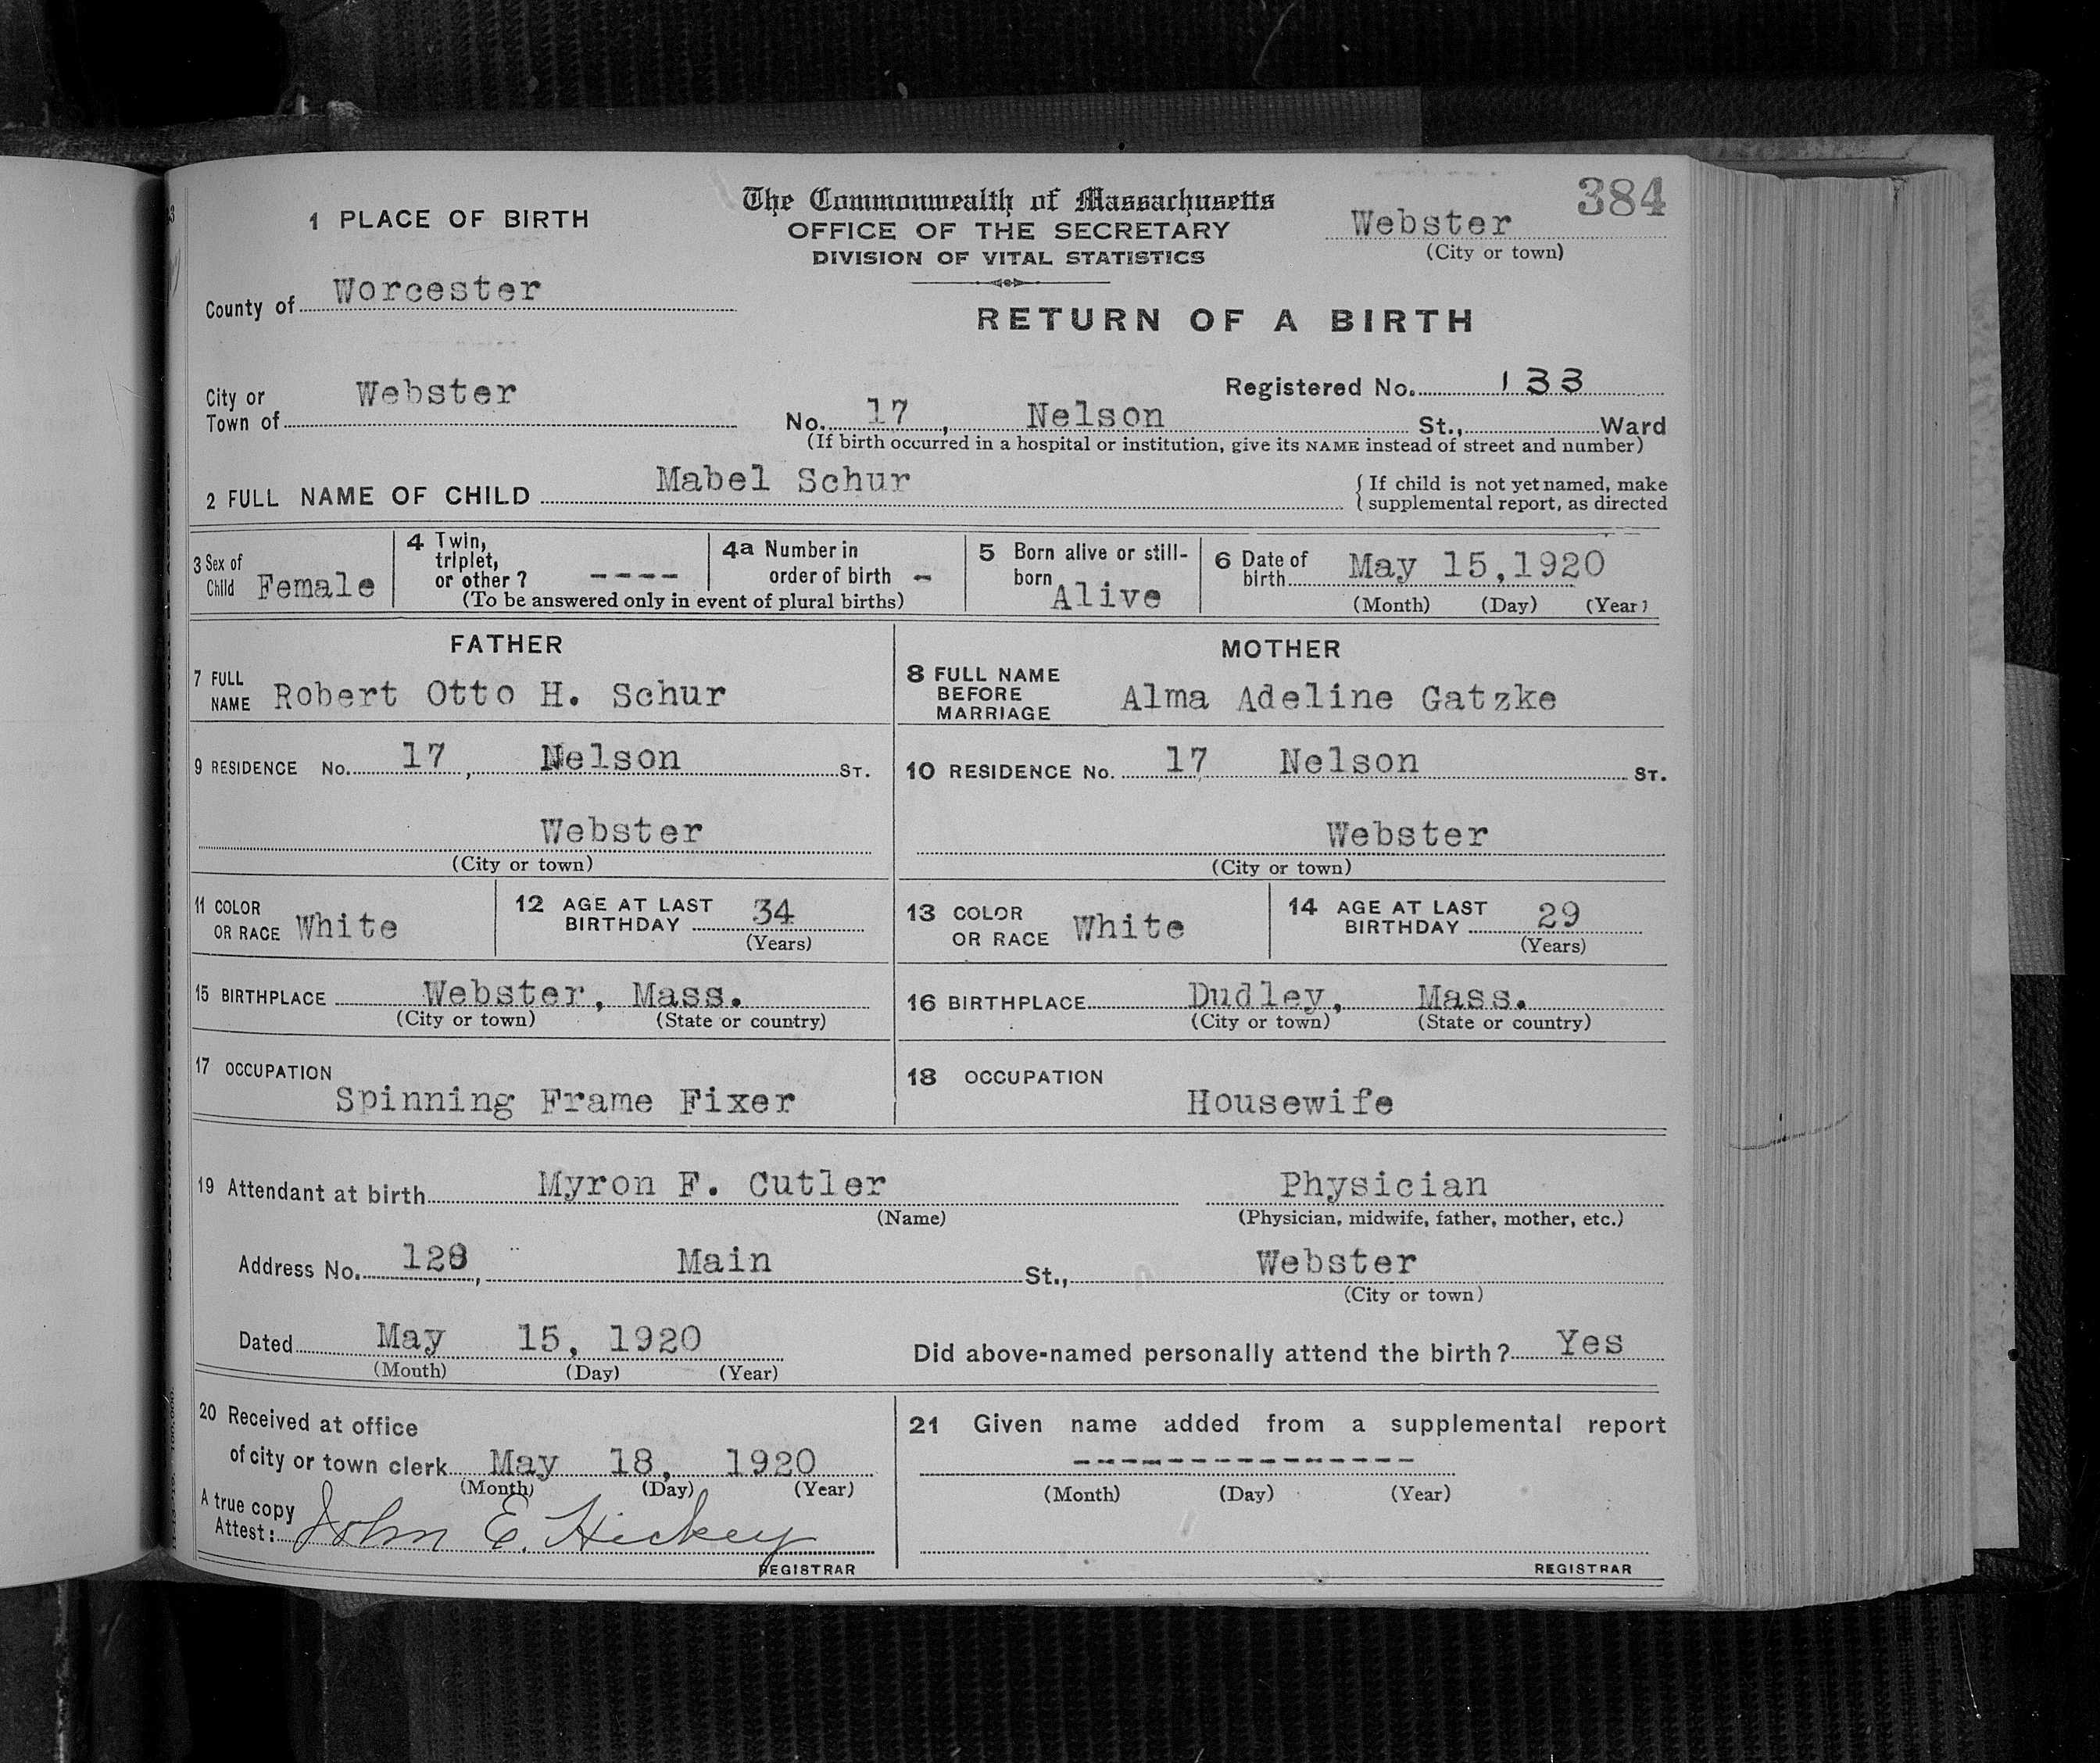 384
The Commonwealth of Massachusetts
1 PLACE OF BIRTH
OFFICE OF THE SECRETARY
Webster
DIVISION OF VITAL STATISTICS
(City or town)
County of Worcester
RETURN OF A BIRTH
Registered No. 133
City or Town of Webster
No. 17, Nelson St., Ward
(If birth occurred in a hospital or institution, give its NAME instead of street and number)
2 FULL NAME OF CHILD Mabel Schur
{ If child is not yet named, make
supplemental report, as directed
3 Sex of Child Female
4 Twin, triplet, or other? ----
4a Number in order of birth -
(To be answered only in event of plural births)
5 Born alive or still-born Alive
6 Date of birth May 15, 1920
(Month) (Day) (Year)
FATHER
7 FULL NAME Robert Otto H. Schur
MOTHER
8 FULL NAME BEFORE MARRIAGE Alma Adeline Gatzke
9 RESIDENCE No. 17, Nelson ST.
Webster
(City or town)
10 RESIDENCE No. 17 Nelson ST.
Webster
(City or town)
11 COLOR OR RACE White
12 AGE AT LAST BIRTHDAY 34
(Years)
13 COLOR OR RACE White
14 AGE AT LAST BIRTHDAY 29
(Years)
15 BIRTHPLACE Webster, Mass.
(City or town) (State or country)
16 BIRTHPLACE Dudley, Mass.
(City or town) (State or country)
17 OCCUPATION
Spinning Frame Fixer
18 OCCUPATION
Housewife
19 Attendant at birth Myron F. Cutler Physician
(Name) (Physician, midwife, father, mother, etc.)
Address No. 128, Main St., Webster
(City or town)
Dated May 15, 1920 Did above-named personally attend the birth? Yes
(Month) (Day) (Year)
20 Received at office
of city or town clerk May 18, 1920
(Month) (Day) (Year)
A true copy
Attest: John E. Hickey
REGISTRAR
21 Given name added from a supplemental report
---------------
(Month) (Day) (Year)
REGISTRAR